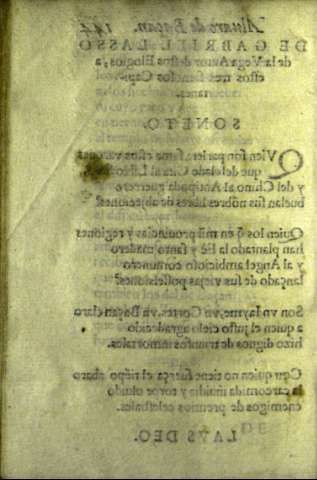 Aluaro de Baçan.
DE GABRIEL LASSO
de la Vega Autor destos Elogios, a
estos tres famosos Capi-
tanes.
SONETO.
QVien son fama estos varones
que del elado al
y del Chino al Antipoda guerrero
buelan sus nõbres libres de objeciones?
Quien los q̃ en mil prouincias y regiones
han plantado la Fè y santo madero
y al Angel ambicioso comunero
lançado de sus viejas possessiones?
Son vn Iayme, vn Cortes, vn Baçan claro
a quien el justo cielo agradecido
hizo dignos de triunfos inmortales.
Con quien no tiene fuerça el tiẽpo abaro
la carcomida inuidia y torpe oluido
enemigos de premios celestiales.
LAVS DEO.